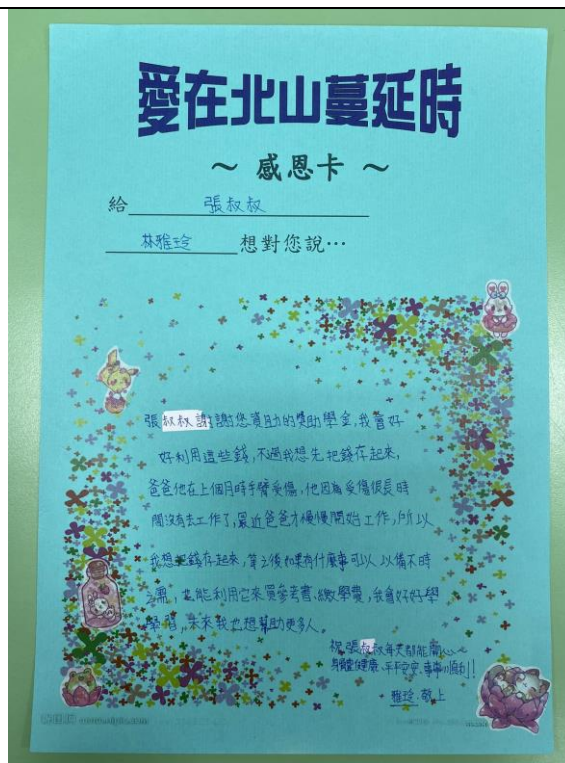 愛在北山蔓延時
～ 感恩卡 ～
給 張叔叔
林雅玲 想對您說…
張叔叔謝謝您資助的獎助學金,我會好
好利用這些錢,不過我想先把錢存起來,
爸爸他在上個月時手臂受傷,他因為受傷很長時
間沒有去工作了,最近爸爸才慢慢開始工作,所以
我想把錢存起來,等之後如果有什麼事可以以備不時
之需,也能利用它來買參考書、繳學費,我會好好學
學習,未來我也想幫助更多人。
祝張叔叔每天都能開心~
身體健康、平平安安、事事順利!!
雅玲.敬上